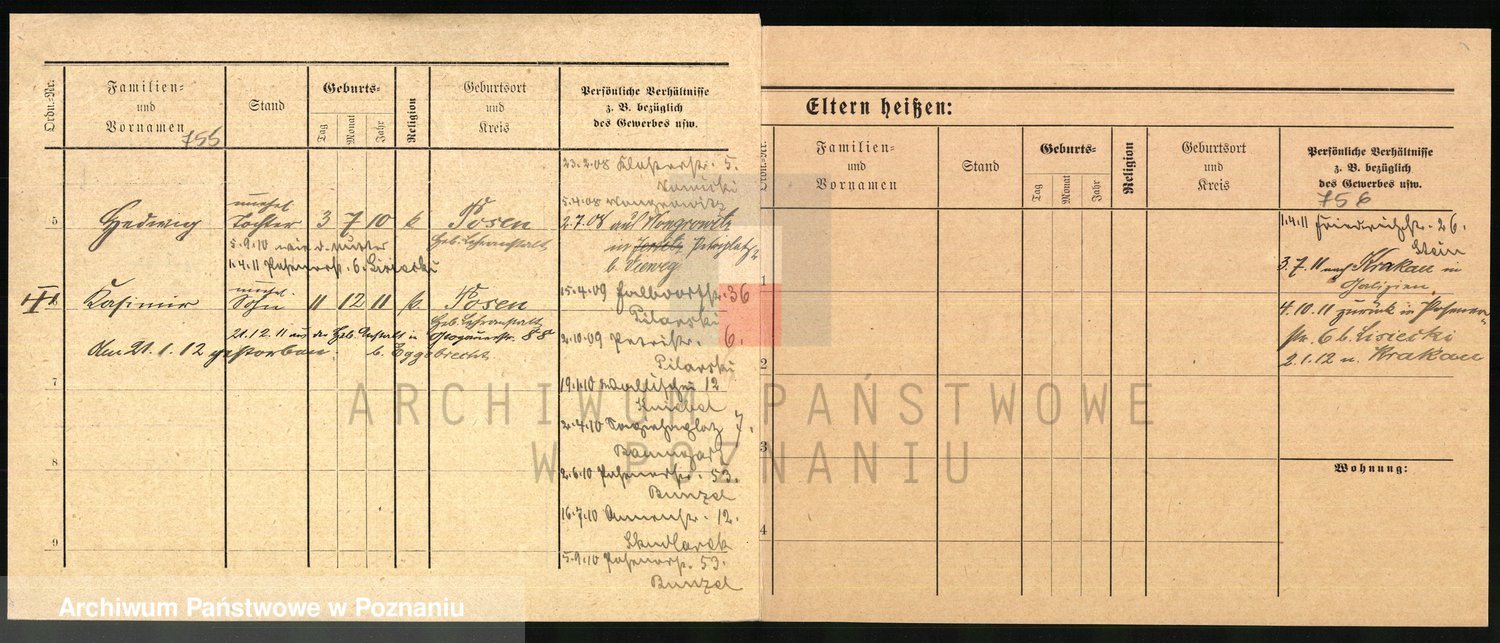 Ordn.-Nr.
Familien-
und
Vornamen
Stand
Geburts-
Tag
Monat
Jahr
Religion
Geburtsort
und
Kreis
Persönliche Verhältnisse
z. B. bezüglich
des Gewerbes usw.
756
23.2.08 Klosterstr. 5.
5.4.08 Wongrowitz
5
Hedwig
unehel
Tochter
3 7 10 k
Posen
Geb. Lehranstalt
2.7.08 aus Wongrowitz
in Petriplatz 2
b. Vieweg
5.9.10 wie d. Mutter
1.4.11 Posenerstr. 6. Lisiecki
Kasimir
unehel.
Sohn
11 12 11 k
Posen
Geb. Lehranstalt
15.4.09 Halbdorfstr. 36
Pilarski
21.12.11 aus der Geb. Anstalt in Glogauerstr. 88a
b. Eggebrecht
Am 21.1.12 gestorben.
2.10.09 Petristr. 6.
Pilarski
7
19.1.10 Wallischei 12
2.4.10 Sapiehaplatz 7.
Baumgart
8
2.6.10 Posenerstr. 53.
Bunzel
16.7.10 Annenstr. 12.
Skudlarek
9
5.9.10 Posenerstr. 53.
Bunzel
Eltern heißen:
Ordn.-Nr.
Familien-
und
Vornamen
Stand
Geburts-
Tag
Monat
Jahr
Religion
Geburtsort
und
Kreis
Persönliche Verhältnisse
z. B. bezüglich
des Gewerbes usw.
756
1.4.11 Friedrichstr. 26.
Stein
1
3.7.11 nach Krakau in
Galizien.
4.10.11 zurück in Posener
str. 6 b. Lisiecki
2
2.1.12 n. Krakau
3
Wohnung:
4
ARCHIWUM PAŃSTWOWE
W POZNANIU
Archiwum Państwowe w Poznaniu